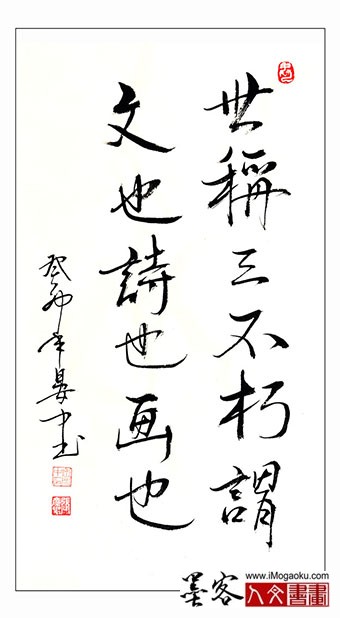 世稱三不朽謂
文也詩也画也
癸卯年晏中书
www.iMogaoku.com
墨客
人文書畫